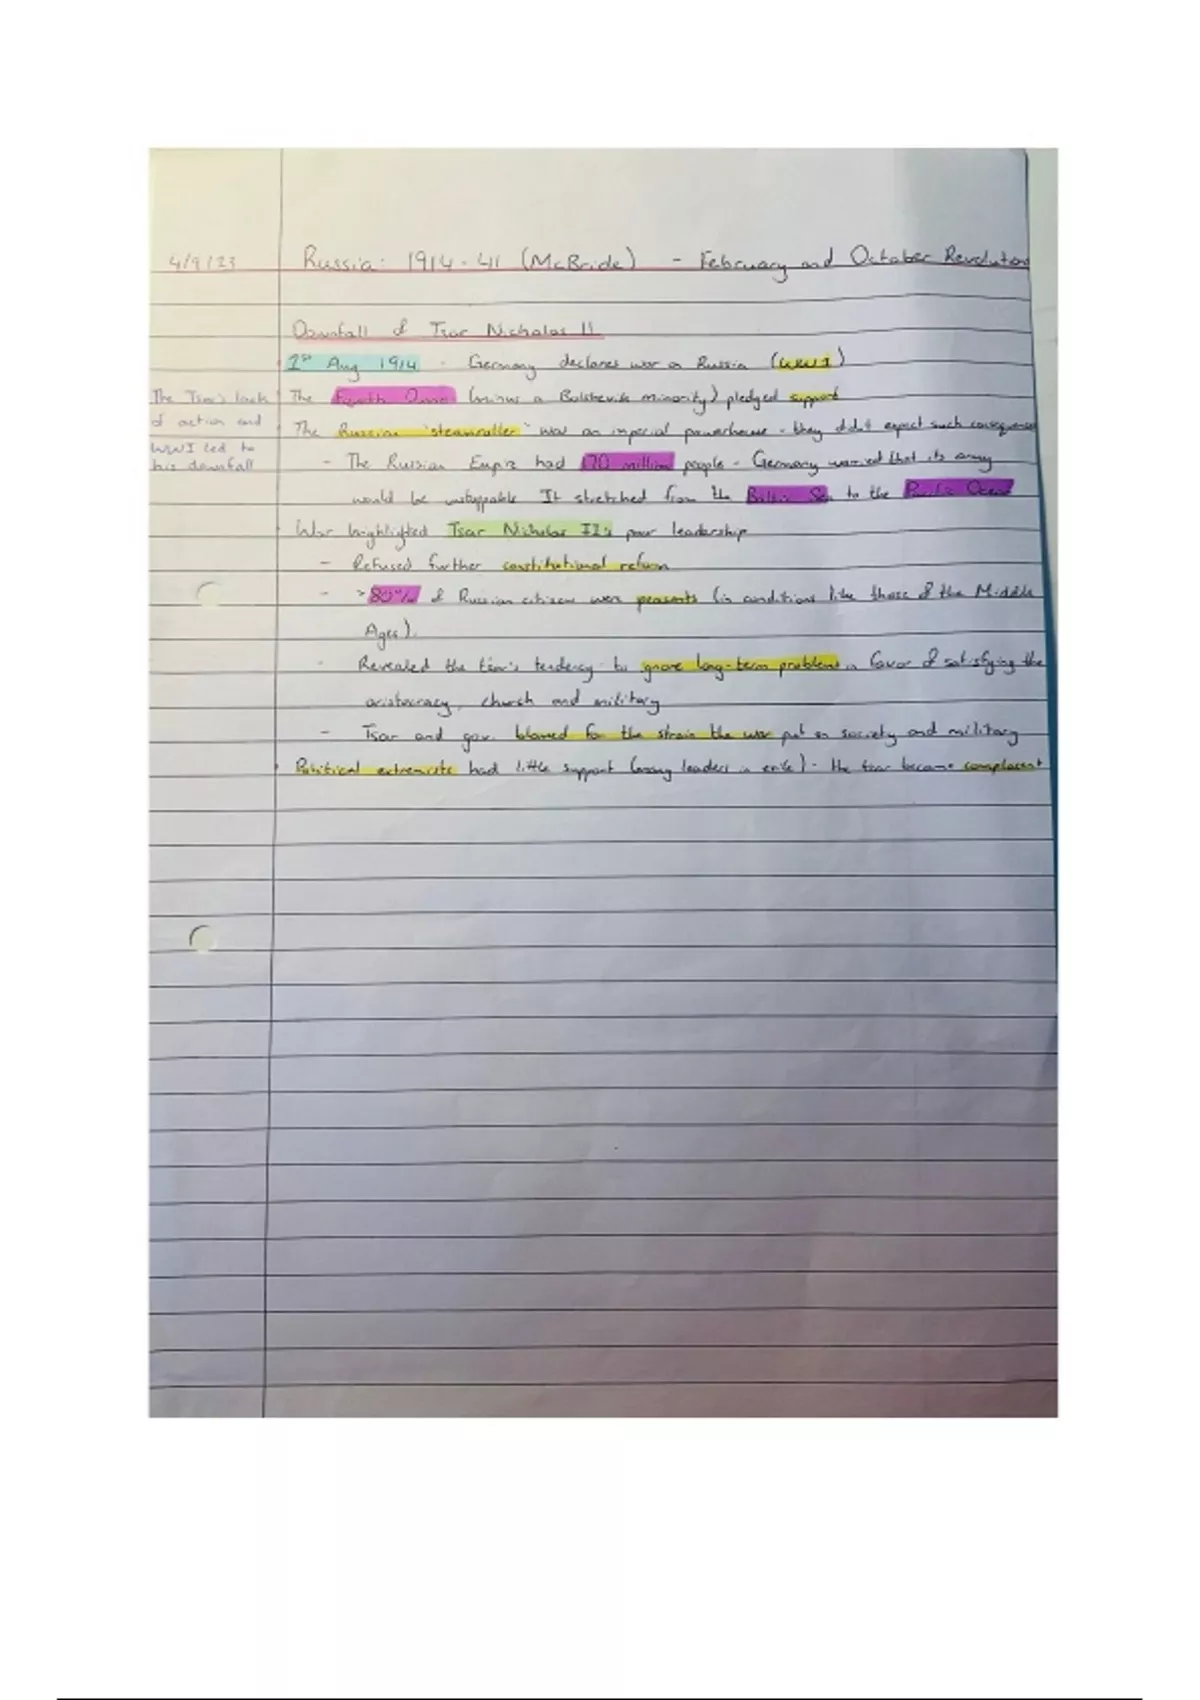 4/9/23
Russia: 1914-41 (McBride) - February and October Revolution
Downfall of Tsar Nicholas II
1st Aug 1914 - Germany declares war on Russia (WWI)
The Fourth Duma (minus a Bolshevik minority) pledged support
The Russian 'steamroller' was an imperial powerhouse - they didn't expect such consequences
- The Russian Empire had 170 million people - Germany worried that its army
would be unstoppable. It stretched from the Baltic Sea to the Pacific Ocean
War highlighted Tsar Nicholas II's poor leadership
- Refused further constitutional reform
- >80% of Russian citizens were peasants (in conditions like those of the Middle
Ages).
- Revealed the tsar's tendency to ignore long-term problems in favor of satisfying the
aristocracy, church and military
- Tsar and gov. blamed for the strain the war put on society and military
Political extremists had little support (many leaders in exile) - the tsar became complacent
The Tsar's lack
of action and
WWI led to
his downfall